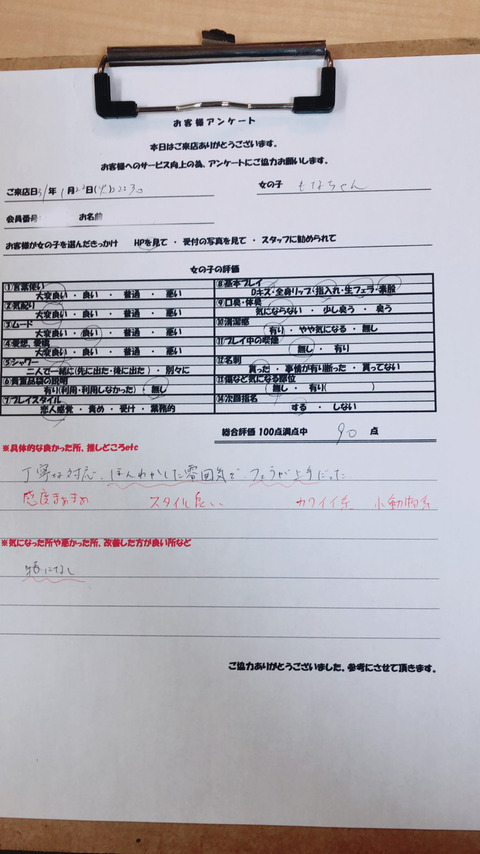 お客様アンケート
本日はご来店ありがとうございます。
お客様へのサービス向上の為、アンケートにご協力お願いします。
ご来店日31年1月22日(火)22:30 女の子 もなちゃん
会員番号: お名前
お客様が女の子を選んだきっかけ HPを見て ・ 受付の写真を見て ・ スタッフに勧められて
女の子の評価
①言葉使い
大変良い ・ 良い ・ 普通 ・ 悪い
②気配り
大変良い ・ 良い ・ 普通 ・ 悪い
③ムード
大変良い ・ 良い ・ 普通 ・ 悪い
④愛想、愛嬌
大変良い ・ 良い ・ 普通 ・ 悪い
⑤シャワー
二人で一緒に(先に出た・後に出た) ・ 別々に
⑥貴重品袋の説明
有り(利用・利用しなかった) ・ 無し
⑦プレイスタイル
恋人感覚 ・ 責め ・ 受け ・ 業務的
⑧基本プレイ
Dキス・全身リップ・指入れ・生フェラ・素股
⑨口臭・体臭
気にならない ・ 少し臭う ・ 臭う
⑩清潔感
有り ・ やや気になる ・ 無し
⑪プレイ中の喫煙
無し ・ 有り
⑫名刺
貰った ・ 事情が有り断った ・ 貰ってない
⑬傷など気になる部位
無し ・ 有り( )
⑭次回指名
する ・ しない
総合評価 100点満点中 90 点
※具体的な良かった所、推しどころetc
丁寧な対応、ほんわかした雰囲気で、フェラが上手だった
感度まぁまぁ スタイル良い カワイイ系 小動物系
※気になった所や悪かった所、改善した方が良い所など
特になし
ご協力ありがとうございました。参考にさせて頂きます。